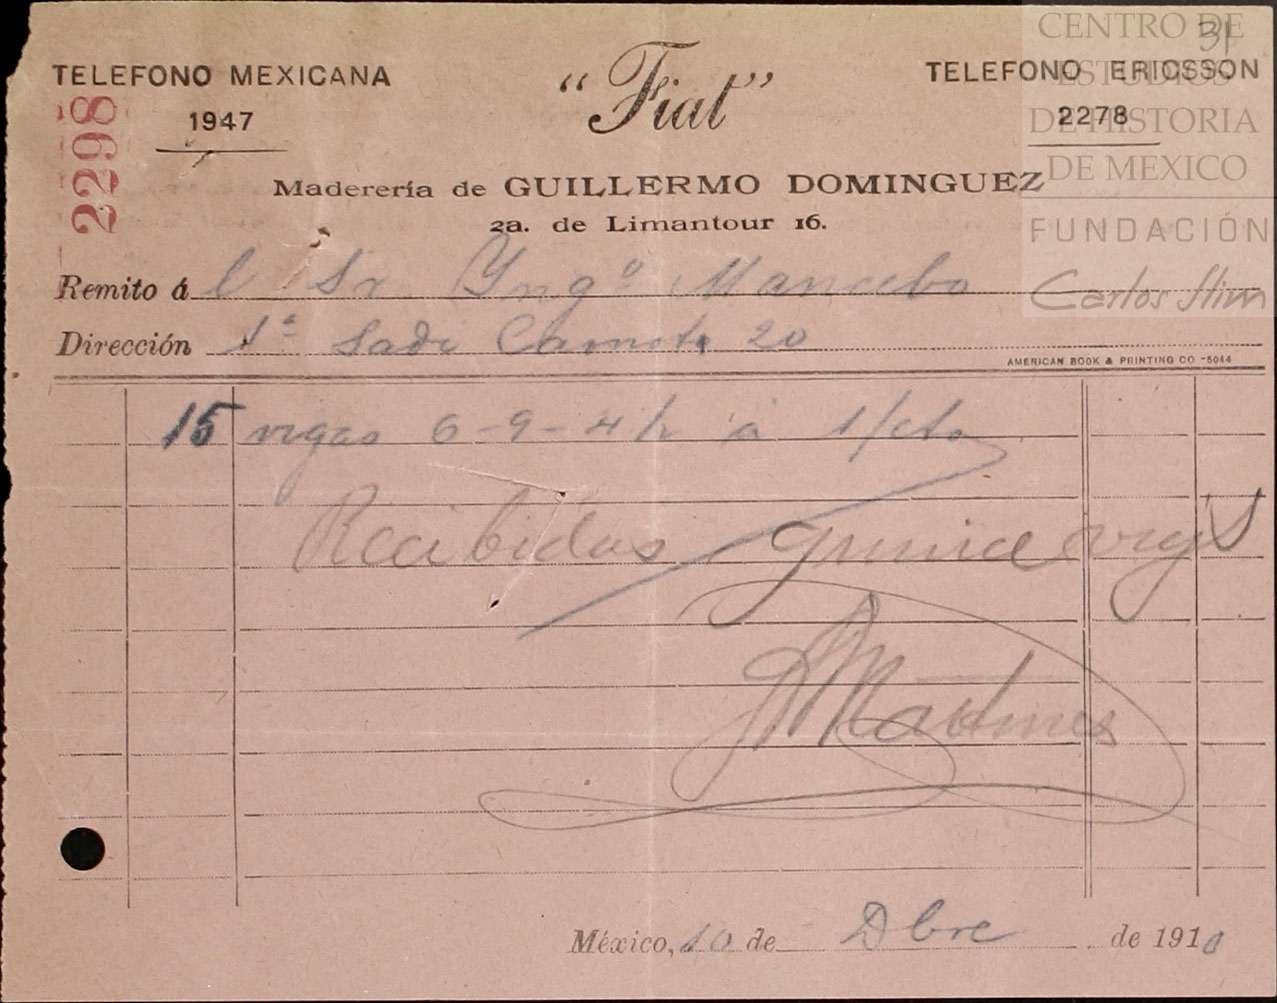 CENTRO DE
ESTUDIOS
DE HISTORIA
DE MEXICO
FUNDACIÓN
Carlos Slim
31
TELEFONO MEXICANA
1947
"Fiat"
TELEFONO ERICSSON
2278
2298
Maderería de GUILLERMO DOMINGUEZ
2a. de Limantour 16.
Remito á l Sr Yngº Mancebo
Dirección 1ª Sadi Carnot 20
AMERICAN BOOK & PRINTING CO -5064
15 vigas 6-9-4½ á
Recibidas quince vigs
Martinez
México, 10 de Dbre de 1910